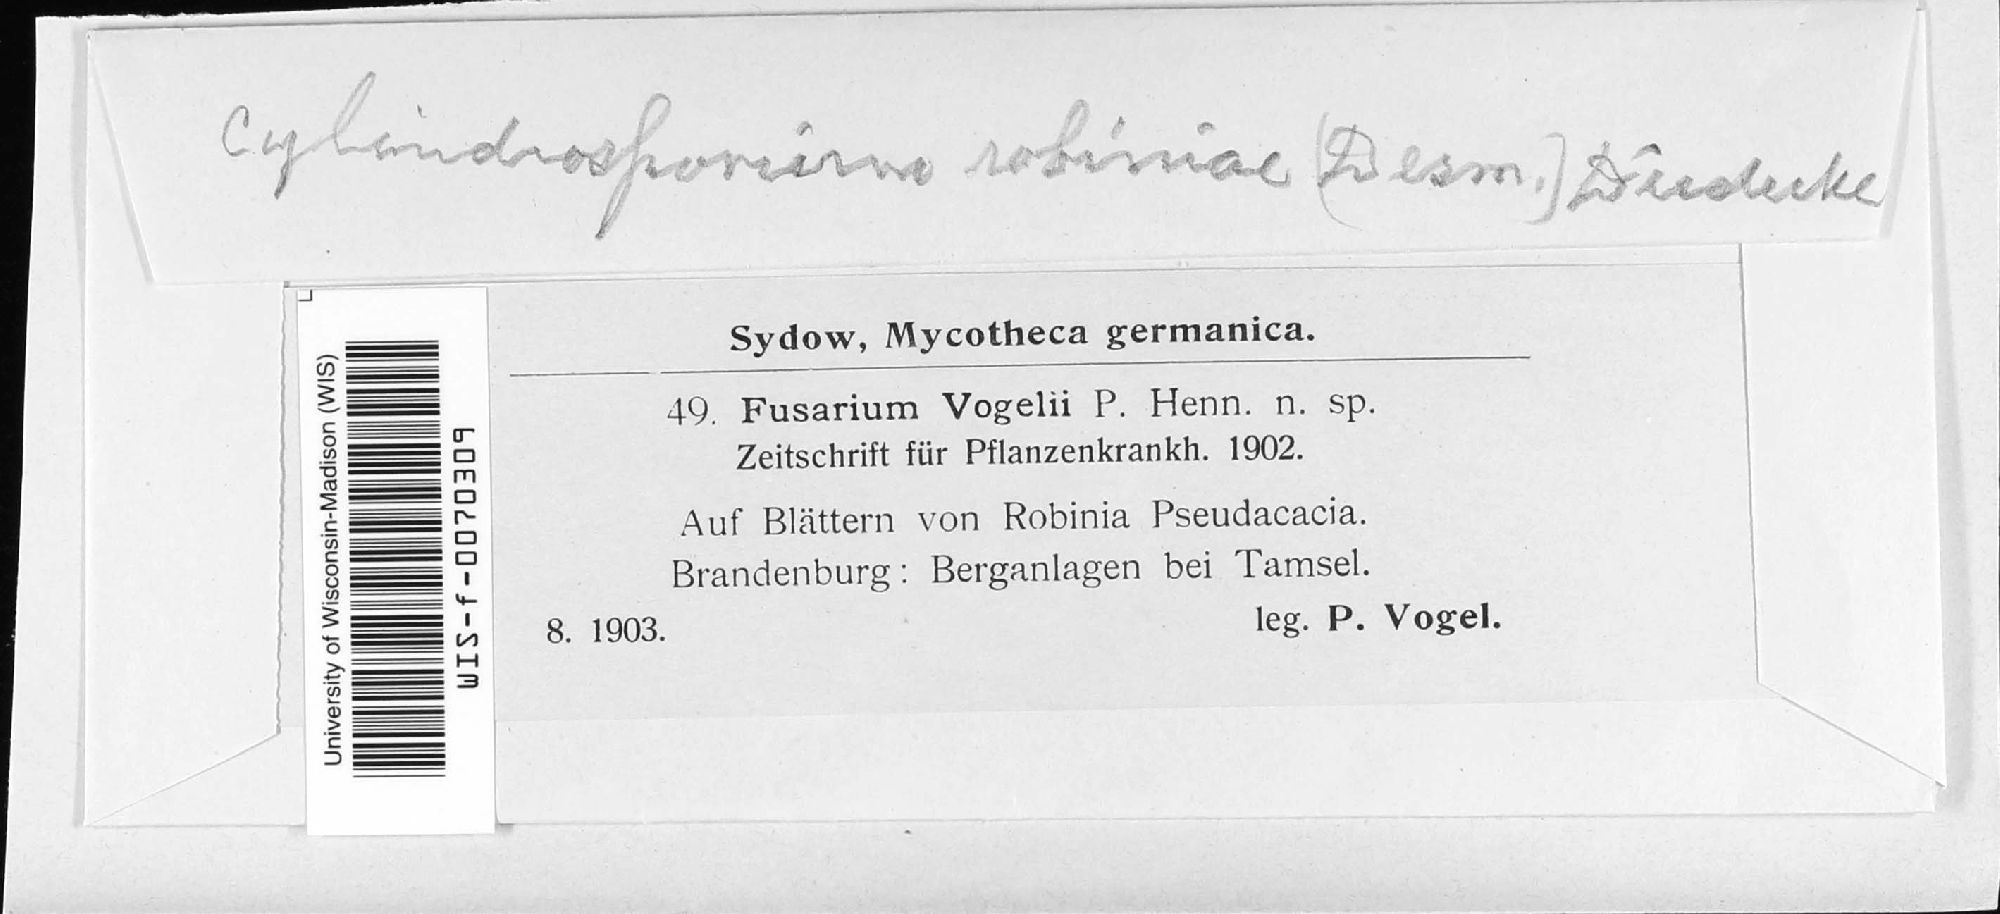 Cylindrosporium robiniae (Desm.) Diedicke
Sydow, Mycotheca germanica.
49. Fusarium Vogelii P. Henn. n. sp.
Zeitschrift für Pflanzenkrankh. 1902.
Auf Blättern von Robinia Pseudacacia.
Brandenburg: Berganlagen bei Tamsel.
8. 1903.
leg. P. Vogel.
University of Wisconsin-Madison (WIS)
WIS-f-0070309